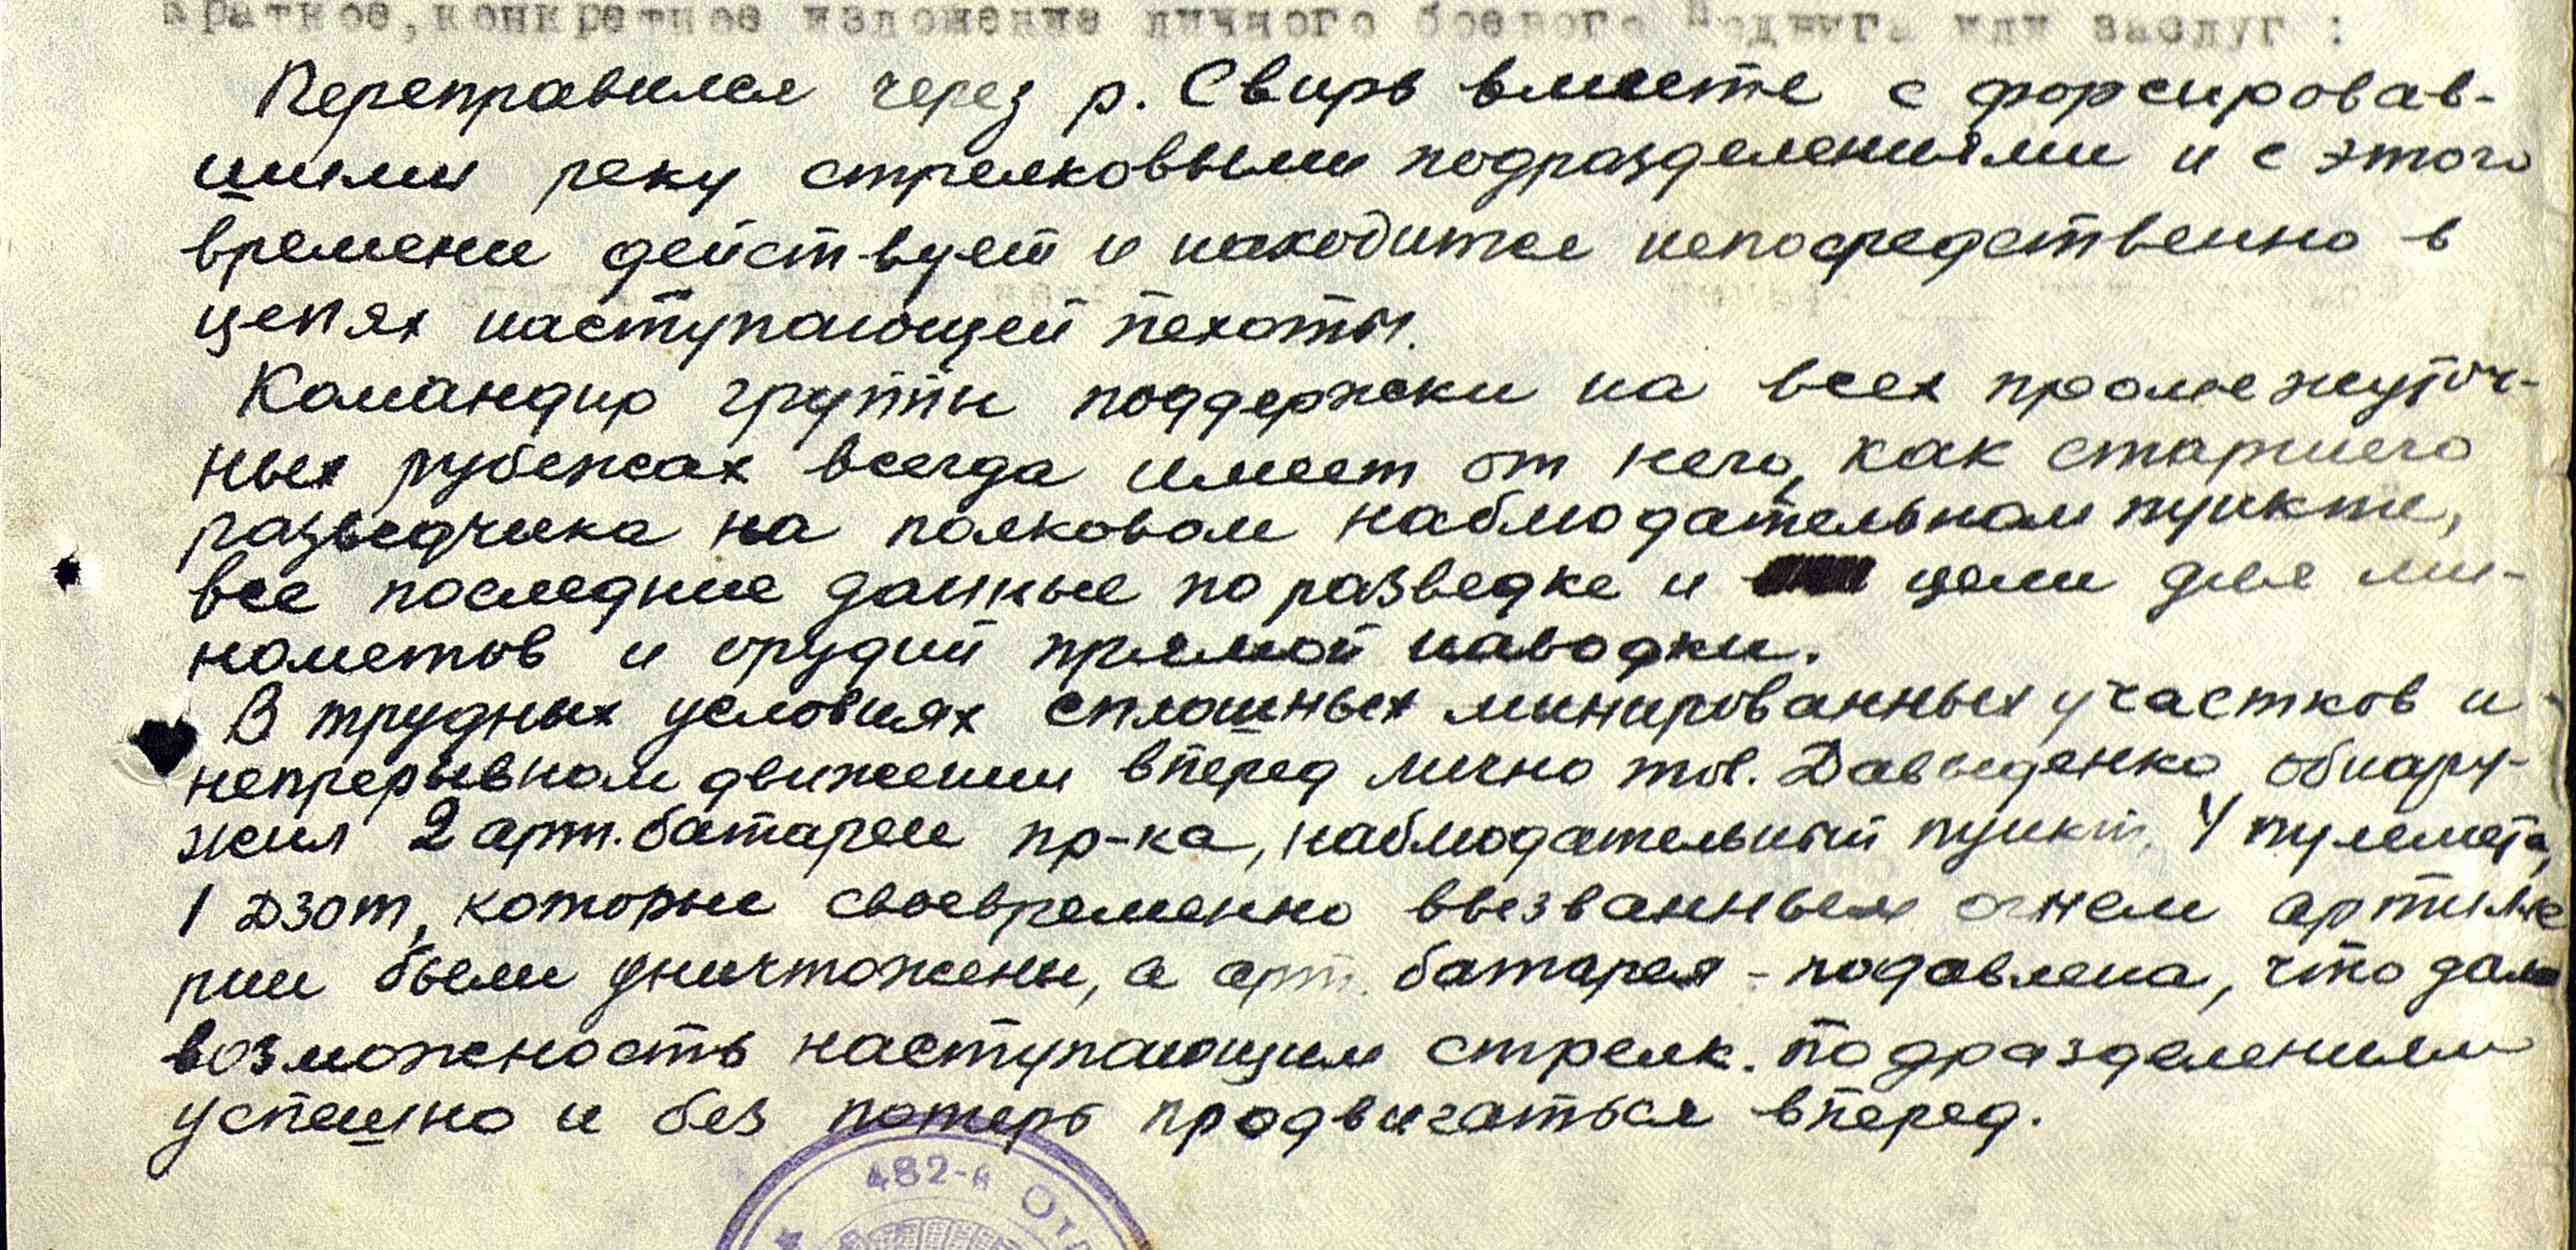 краткое, конкретное изложение личного боевого подвига или заслуг :
Переправился через р. Свирь вместе с форсировав-
шими реку стрелковыми подразделениями и с этого
времени действует и находится непосредственно в
цепях наступающей пехоты.
Командир группы поддержки на всех промежуточ-
ных рубежах всегда имеет от него, как старшего
разведчика на полковом наблюдательном пункте,
все последние данные по разведке и цели для ми-
нометов и орудий прямой наводки.
В трудных условиях сплошных минированных участков и
непрерывном движении вперед лично тов. Давыденко обнару-
жил 2 арт. батареи пр-ка, наблюдательный пункт, 4 пулемета,
1 ДЗОТ, которые своевременно вызванным огнем артилле
рии были уничтожены, а арт. батарея - подавлена, что дало
возможность наступающим стрелк. подразделениям
успешно и без потерь продвигаться вперед.
482-й Отд